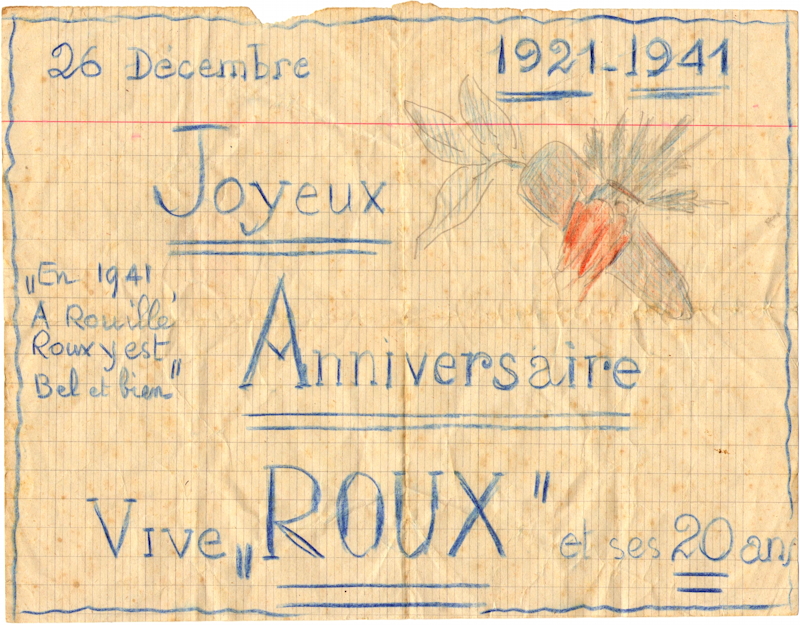 26 Décembre
1921-1941
Joyeux
„En 1941
A Rouillé
Roux y est
Bel et bien"
Anniversaire
Vive „ROUX" et ses 20 ans